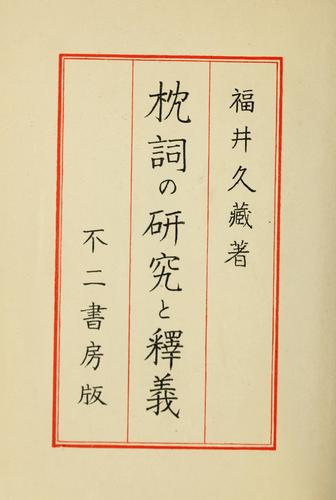 福井久藏著
枕詞の研究と釋義
不二書房版